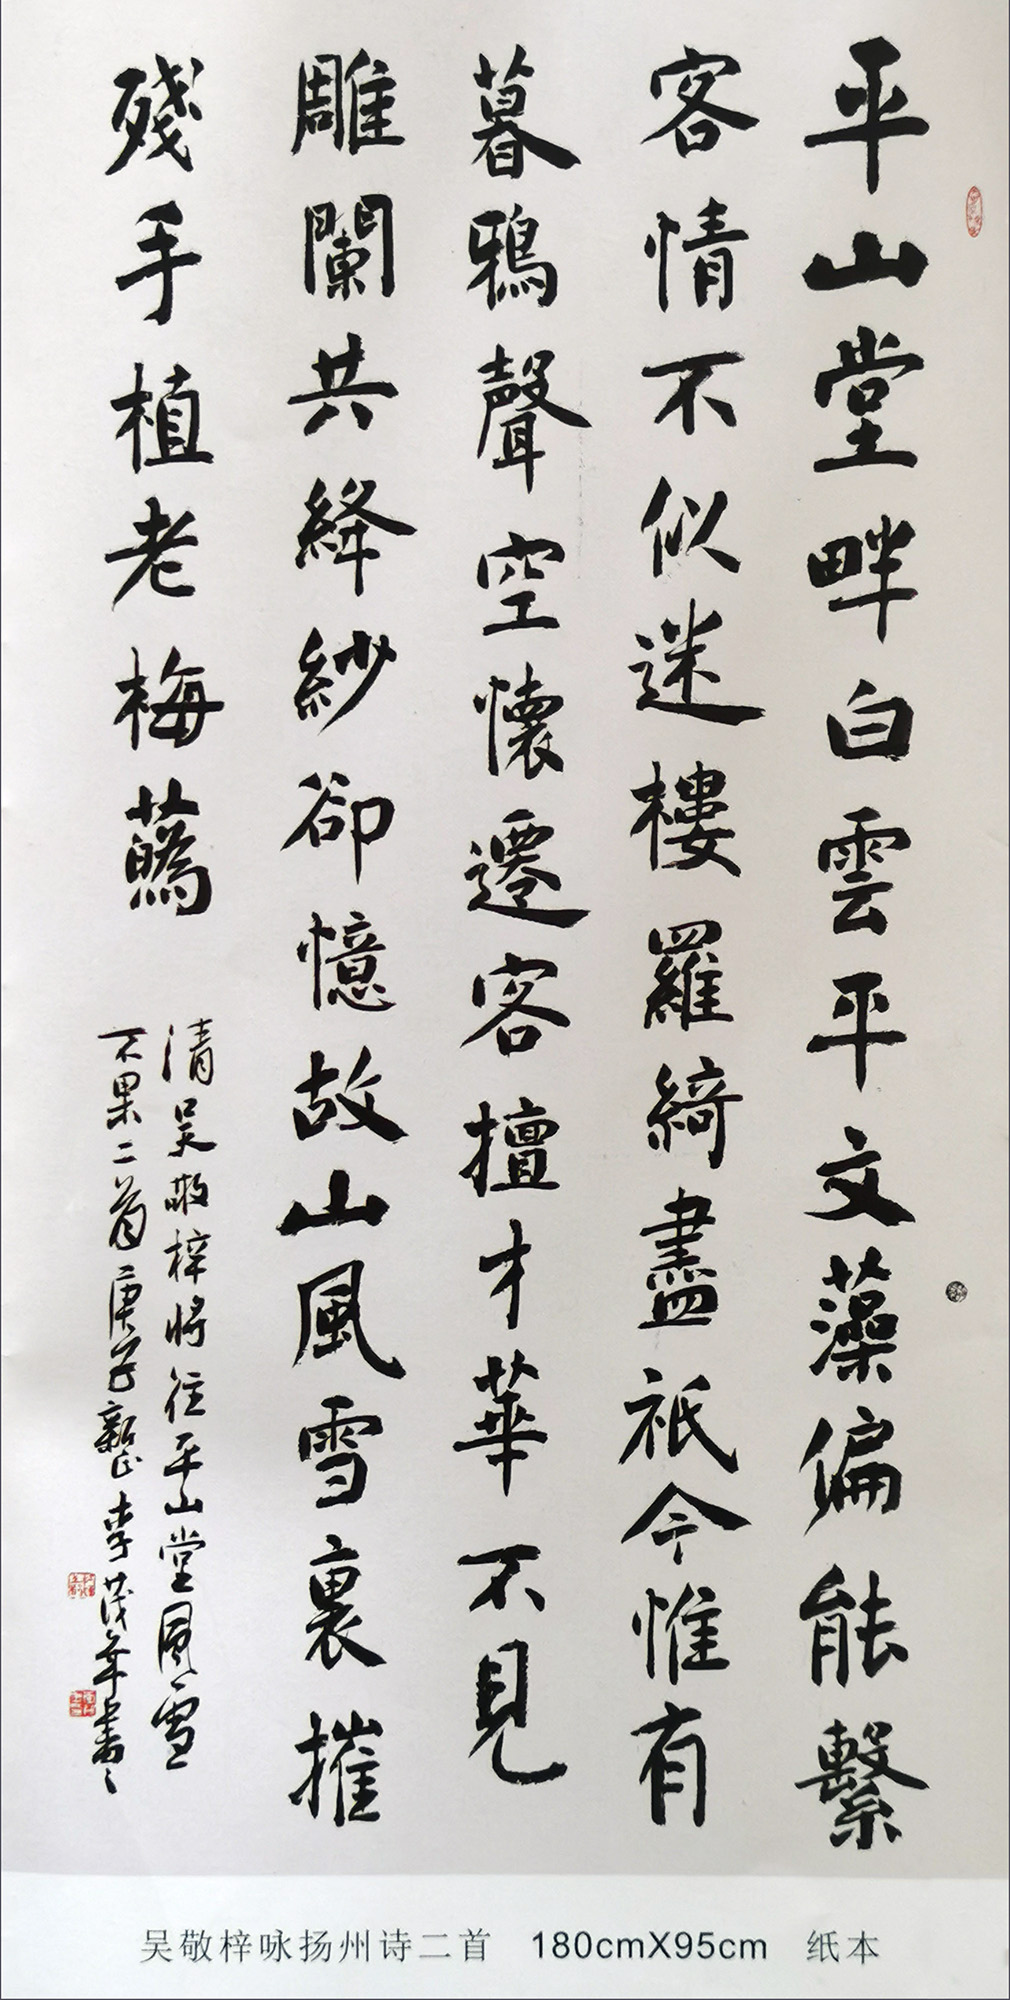 平山堂畔白雲平文藻偏能繫
客情不似迷樓羅綺盡祇今惟有
暮鴉聲空懷遷客擅才華不見
雕闌共絳紗卻憶故山風雪裏摧
殘手植老梅
清吴敬梓將往平山堂風雪
不果二首庚子新正李茂年書
吴敬梓咏扬州诗二首 180cmX95cm 纸本